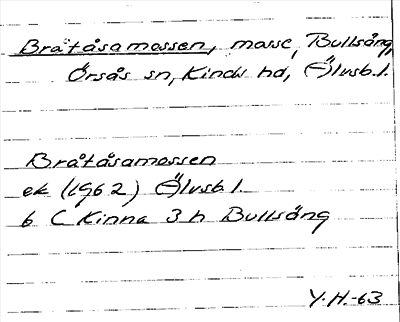 Bråtåsamossen, mosse, Bullsäng,
Örsås sn, Kinds hd, Älvsb. l.
Bråtåsamossen
ek (1962) Älvsb l.
6 C Kinna 3 h Bullsäng
Y.H.-63